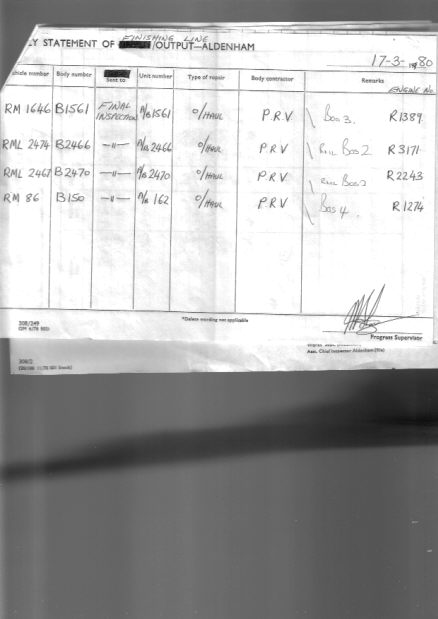 FINISHING LINE
LY STATEMENT OF /OUTPUT—ALDENHAM
17-3-1980
ehicle number Body number Sent to Unit number Type of repair Body contractor Remarks
ENGINE No.
RM 1646 B1561 FINAL INSPECTION A/B1561 O/HAUL P.R.V Bos 3. R1389
RML 2474 B2466 —"— A/B 2466 O/HAUL P.R.V RML Bos 2 R3171
RML 2467 B2470 —"— A/B 2470 O/HAUL P.R.V RML Bos 2 R2243
RM 86 B150 —"— A/B 162 O/HAUL P.R.V Bos 4. R1274
*Delete wording not applicable
308/249
Progress Supervisor
Asst. Chief Inspector Aldenham (file)
308/2